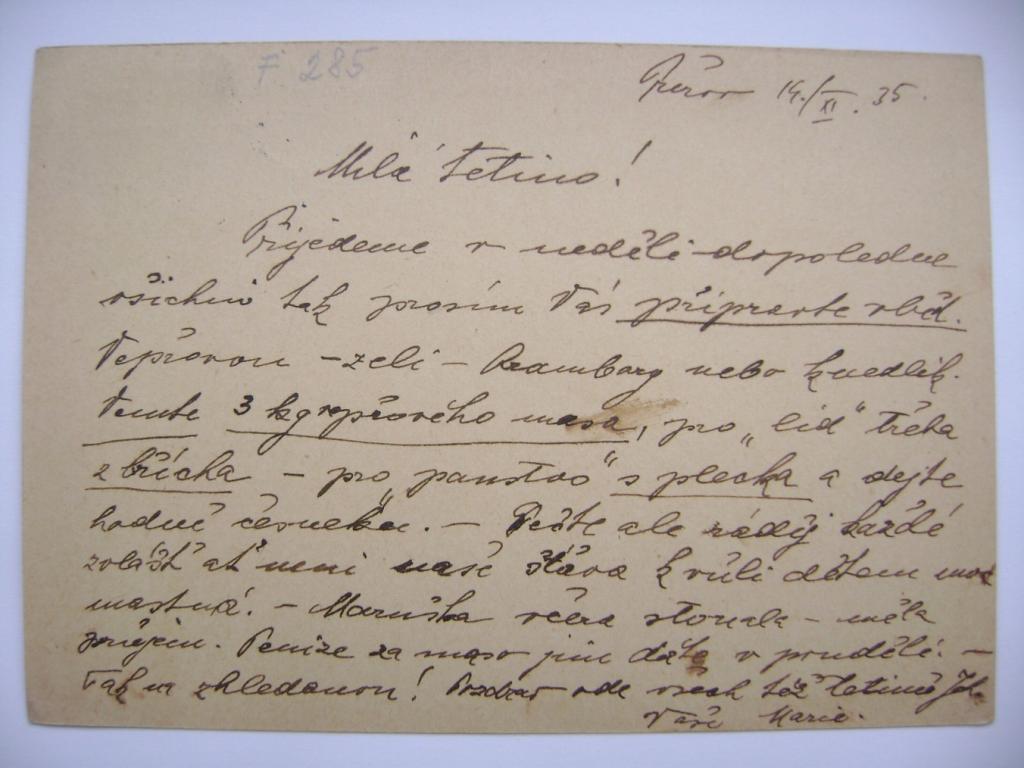 F 285
Přerov 14./XI. 35.
Milá tetino!
Přijedeme v neděli dopoledne
všichni tak prosím Vás připravte oběd.
Vepřovou - zelí - brambory nebo knedlík.
Vemte 3 kg vepřového masa, pro „lid" třeba
z břicha - pro „panstvo" s plecka a dejte
hodně česneku. - Pečte ale raději každé
zvlášť ať není naše šťáva k vůli dětem moc
mastná. - Maruška včera stonala - měla
průjem. Peníze za maso jim dáte v pondělí. -
Tak na shledanou! Pozdrav ode všech též tetině
Vaše Marie.